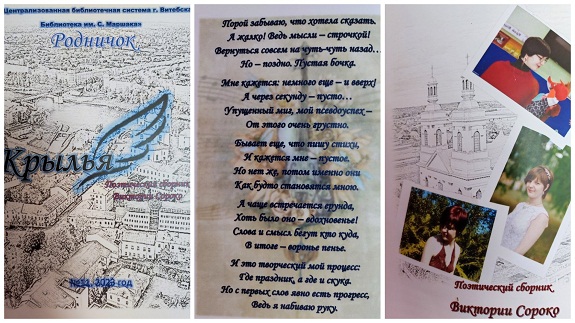 Централизованная библиотечная система г. Витебска
Библиотека им. С. Маршака»
Родничок
Крылья
Поэтический сборник
Виктории Сороко
2023 год
Порой забываю, что хотела сказать.
А жалко! Ведь мысли – строчкой!
Вернуться совсем на чуть-чуть назад…
Но – поздно. Пустая бочка.
Мне кажется: немного еще – и вверх!
А через секунду – пусто…
Упущенный миг, мой псевдоуспех –
От этого очень грустно.
Бывает еще, что пишу стихи,
И кажется мне – пустое.
Но нет же, потом именно они
Как будто становятся мною.
А чаще встречается ерунда,
Хоть было оно – вдохновенье!
Слова и смысл бегут кто куда,
В итоге – воронье пенье.
И это творческий мой процесс:
Где праздник, а где и скука.
Но с первых слов явно есть прогресс,
Ведь я набиваю руку.
Поэтический сборник
Виктории Сороко